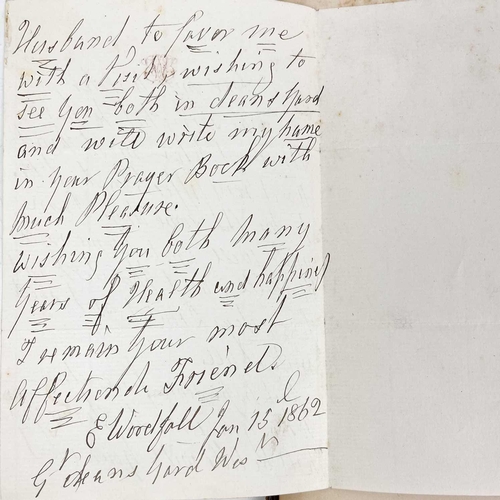 Husband to favor me
with a Visit, wishing to
see you both in deans yard
and will write my name
in your Prayer Book with
much Pleasure.
wishing you both many
years of Health and happines
I remain your most
affectionate Friend.
E Woodfall Jan 15 1862
Gt deans yard Wes